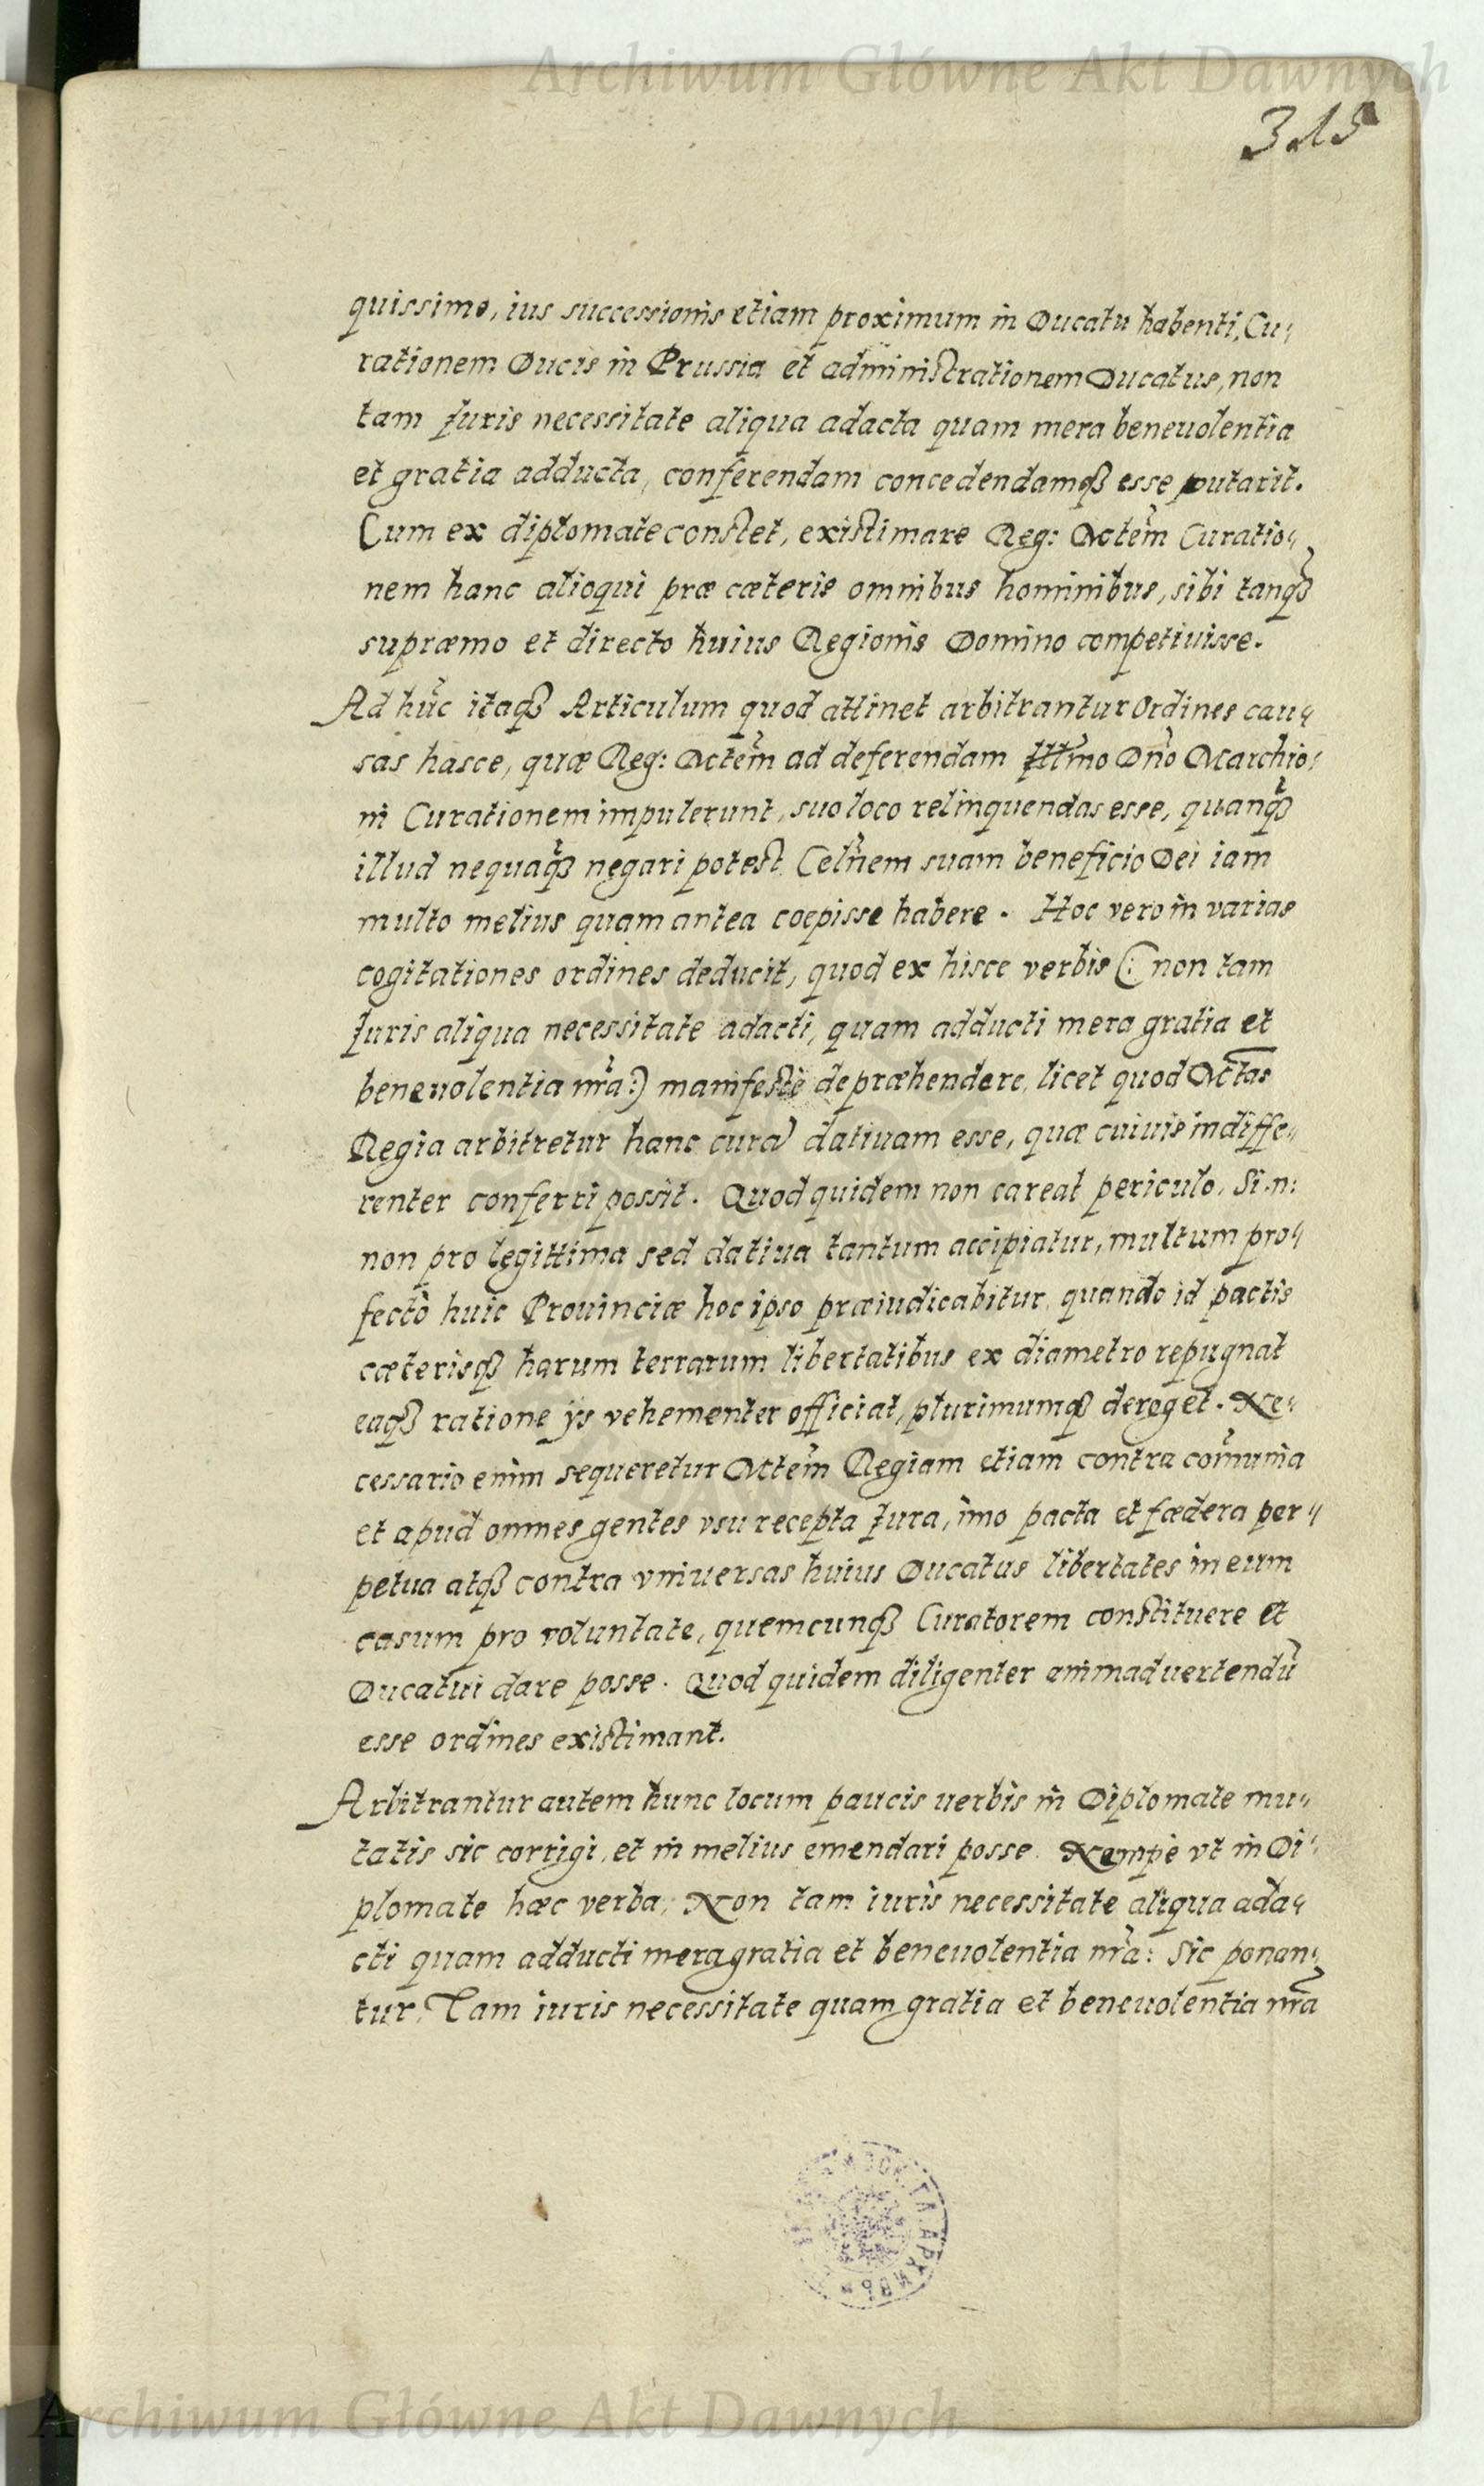 Archiwum Główne Akt Dawnych
315
quissimo, ius successionis etiam proximum in Ducatu habenti, Cu„
rationem Ducis in Prussia et administrationem Ducatus, non
tam Juris necessitate aliqua adacta quam mera beneuolentia
et gratia adducta, conferendam concedendamqȝ esse putarit.
Cum ex diplomate constet, existimare Reg: Mctem̃ Curatio„
nem hanc alioqui præ cæteris omnibus hominibus, sibi tanqȝ̃
supræmo et directo huius Regionis Domino competiuisse.
Ad hũc itaqȝ Articulum quod attinet arbitrantur Ordines cau„
sas hasce, quæ Reg: Mctem̃ ad deferendam Illm̃o Dño Marchio„
ni Curationem impulerunt, suo loco relinquendas esse, quanqȝ̃
illud nequaqȝ̃ negari potest Celñem suam beneficio Dei iam
multo melius quam antea coepisse habere. Hoc vero in varias
cogitationes ordines deducit, quod ex hisce verbis (: non tam
Juris aliqua necessitate adacti, quam adducti mera gratia et
beneuolentia nr̃a :) manifestè depræhendere licet quod Mctas
Regia arbitretur hanc curã datiuam esse, quæ cuiuis indiffe„
renter conferri possit. Quod quidem non careat periculo, Si .n:
non pro legittima sed datiua tantum accipiatur, multum pro„
fectò huic Prouinciæ hoc ipso præiudicabitur, quando id pactis
cæterisqȝ harum terrarum libertatibus ex diametro repugnat
eaqȝ ratione ijs vehementer officiat, plurimumqȝ deroget. Ne„
cessario enim sequeretur Mctem̃ Regiam etiam contra com̃unia
et apud omnes gentes vsu recepta Jura, imo pacta et fædera per„
petua atqȝ contra vniuersas huius Ducatus libertates in eum
casum pro voluntate, quemcunqȝ Curatorem constituere et
Ducatui dare posse. Quod quidem diligenter animaduertendũ
esse ordines existimant.
Arbitrantur autem hunc locum paucis uerbis in Diplomate mu„
tatis sic corrigi, et in melius emendari posse. Nempè vt in Di„
plomate hæc verba, Non tam iuris necessitate aliqua ada„
cti quam adducti mera gratia et beneuolentia nr̃a: Sic ponan„
tur, Tam iuris necessitate quam gratia et beneuolentia nr̃a
Archiwum Główne Akt Dawnych